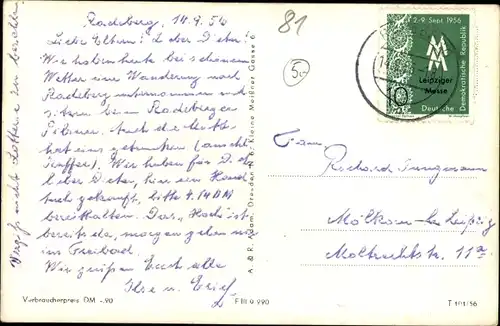 Radeberg, 14.9.56
Liebe Eltern! Lieber Dieter!
Wir haben heute bei schönem
Wetter eine Wanderung nach
Radeberg unternommen und
sitzen beim Radeberger
Pilsner. Auch die Mutti
hat eins getrunken (
). Wir haben für Dich,
lieber Dieter, hier ein Hand
tuch gekauft, bitte 4.15 DM
bereithalten. Das "Hoch" ist
bereits da, morgen gehen wir
ins Freibad.
Wir grüßen Euch alle
Ilse u. Erich
Vergeßt nicht Lotterie zu bezahlen
Verbraucherpreis DM -.20
F III 9 990
A. & R. Adam, Dresden A 1, Kleine Packhofstr
81
5,-
2.-9. Sept. 1956
MM
Leipziger
Messe
10
Deutsche Demokratische Republik
Fam.
Richard Jungmann
Mölkau bei Leipzig
Moltkestr. 11a
T 101/56